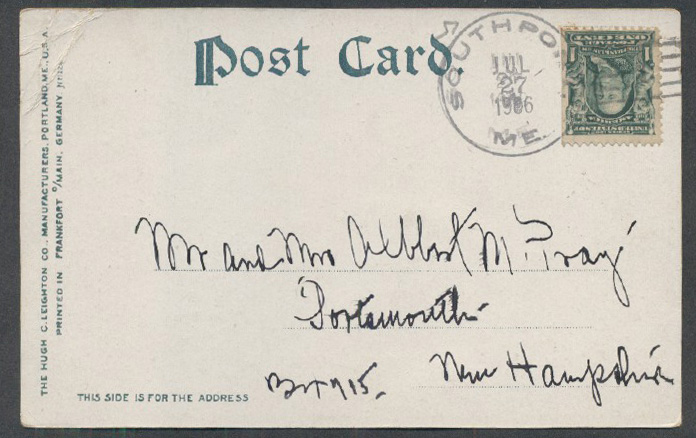 Post Card.
SOUTHPO
JUL
27
1906
ME.
1
Mr and Mrs Albert M. Pray
Portsmouth
New Hampshire
Box 915.
THIS SIDE IS FOR THE ADDRESS
THE HUGH C. LEIGHTON CO., MANUFACTURERS, PORTLAND, ME., U.S.A.
PRINTED IN FRANKFORT o/MAIN, GERMANY